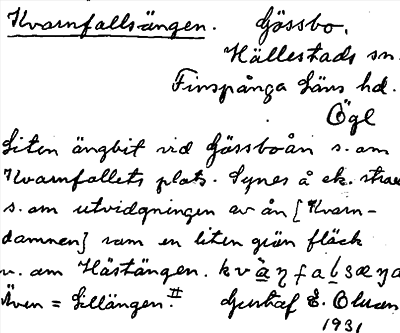 Kvarnfallsängen. Gössbo.
Hällestads sn.
Finspånga läns hd.
Ögl
Liten ängbit vid Gössboån s. om
Kvarnfallets plats. Synes å ek.
s. om utvidgningen av ån [Kvarn-
dammen] som en liten grön fläck
v. om Hästängen.
Även = Lillängen. II Gustaf E. Olsson
1931